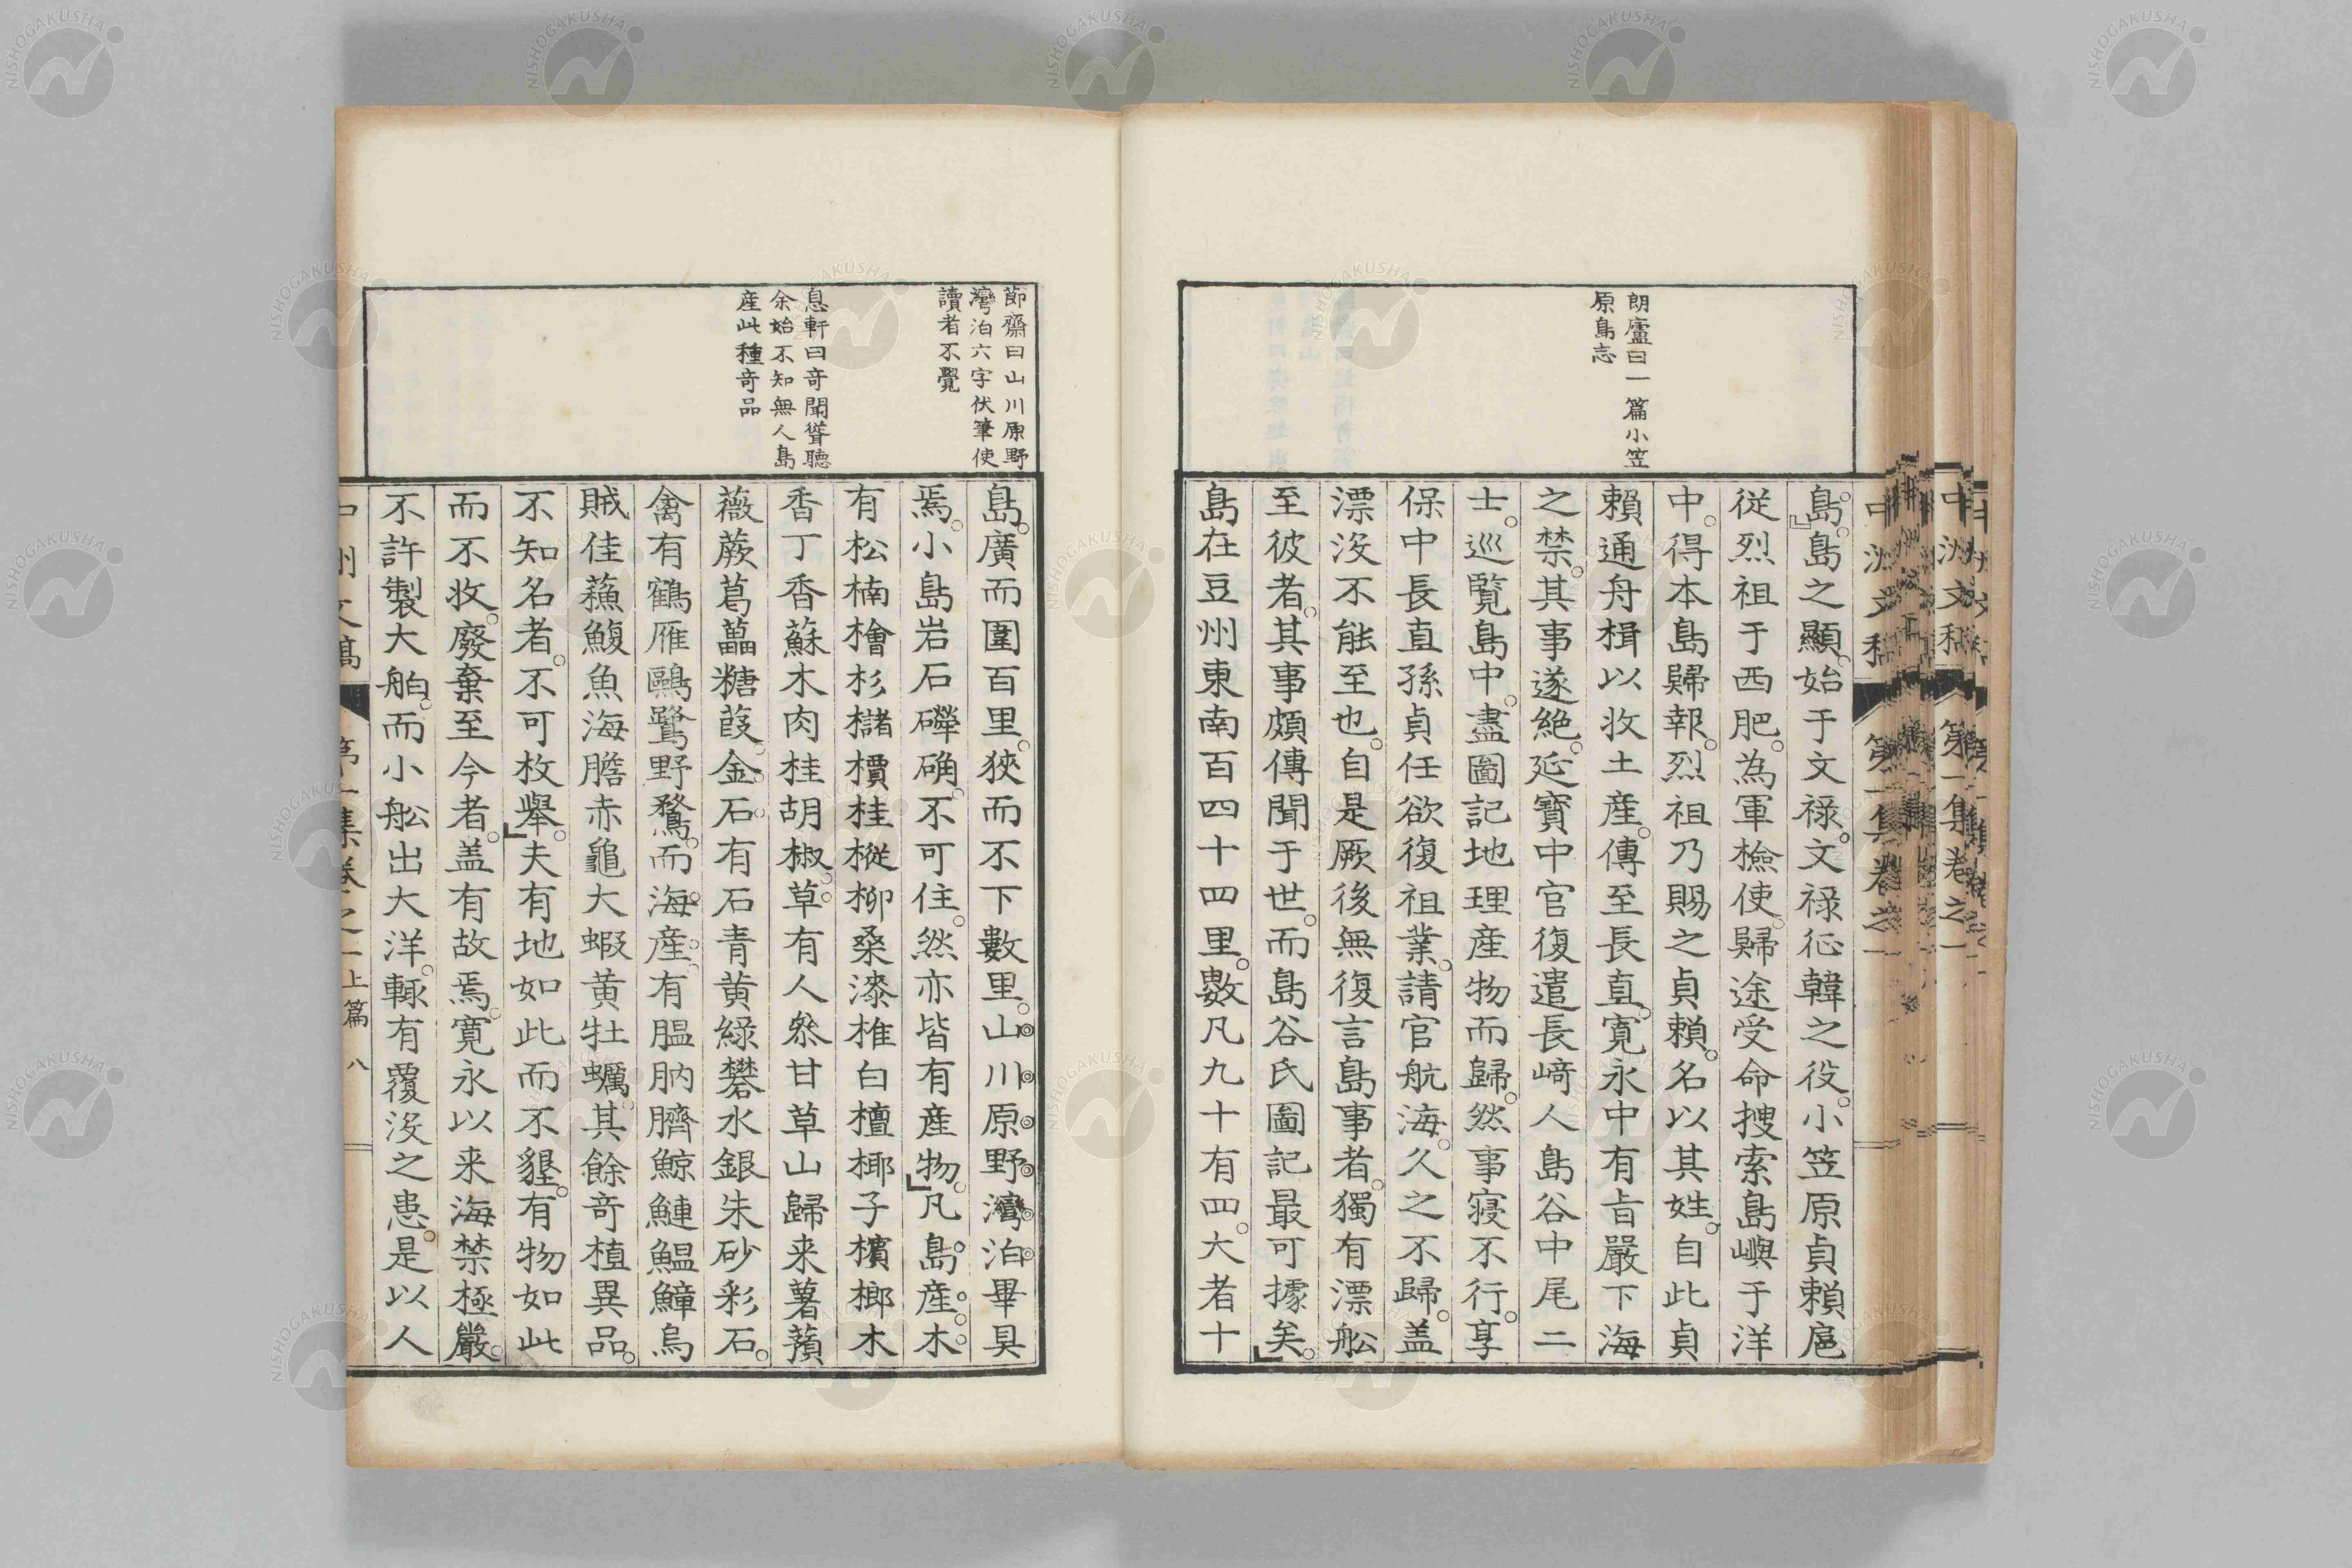 朗廬曰一篇小笠
原島志
島。島之顯。始于文祿。文祿征韓之役。小笠原貞賴扈
從烈祖于西肥。為軍檢使。歸途受命搜索島嶼于洋
中。得本島歸報。烈祖乃賜之貞賴。名以其姓。自此貞
賴通舟楫以收土産。傳至長直。寬永中有旨嚴下海
之禁。其事遂絶。延寶中官復遣長﨑人島谷中尾二
士。巡覽島中。盡圖記地理産物而歸。然事寢不行。享
保中長直孫貞任欲復祖業。請官航海。久之不歸。盖
漂沒不能至也。自是厥後無復言島事者。獨有漂舩
至彼者。其事頗傳聞于世。而島谷氏圖記最可據矣。
島在豆州東南百四十四里。數凡九十有四。大者十
節齋曰山川原野
灣泊六字伏筆使
讀者不覺
息軒曰奇聞聳聽
余始不知無人島
産此種奇品
島。廣而圍百里。狹而不下數里。山川原野灣泊畢具
焉。小島岩石磽确。不可住。然亦皆有産物。凡島産。木
有松楠檜杉櫧檟桂樅柳桑漆椎白檀椰子檳榔木
香丁香蘇木肉桂胡椒。草有人參甘草山歸来薯蕷
薇蕨葛藟糖葭。金石有石青黄綠礬水銀朱砂彩石。
禽有鶴雁鷗鷺野鶩。而海産有膃肭臍鯨鰱鰛鱆烏
賊佳蘓鰒魚海膽赤龜大蝦黄牡蠣。其餘奇植異品。
不知名者。不可枚舉。夫有地如此而不墾。有物如此
而不收。廢棄至今者。盖有故焉。寬永以来海禁極嚴。
不許製大舶。而小舩出大洋。輙有覆沒之患。是以人
中洲文稿 第一集卷之一上篇 八